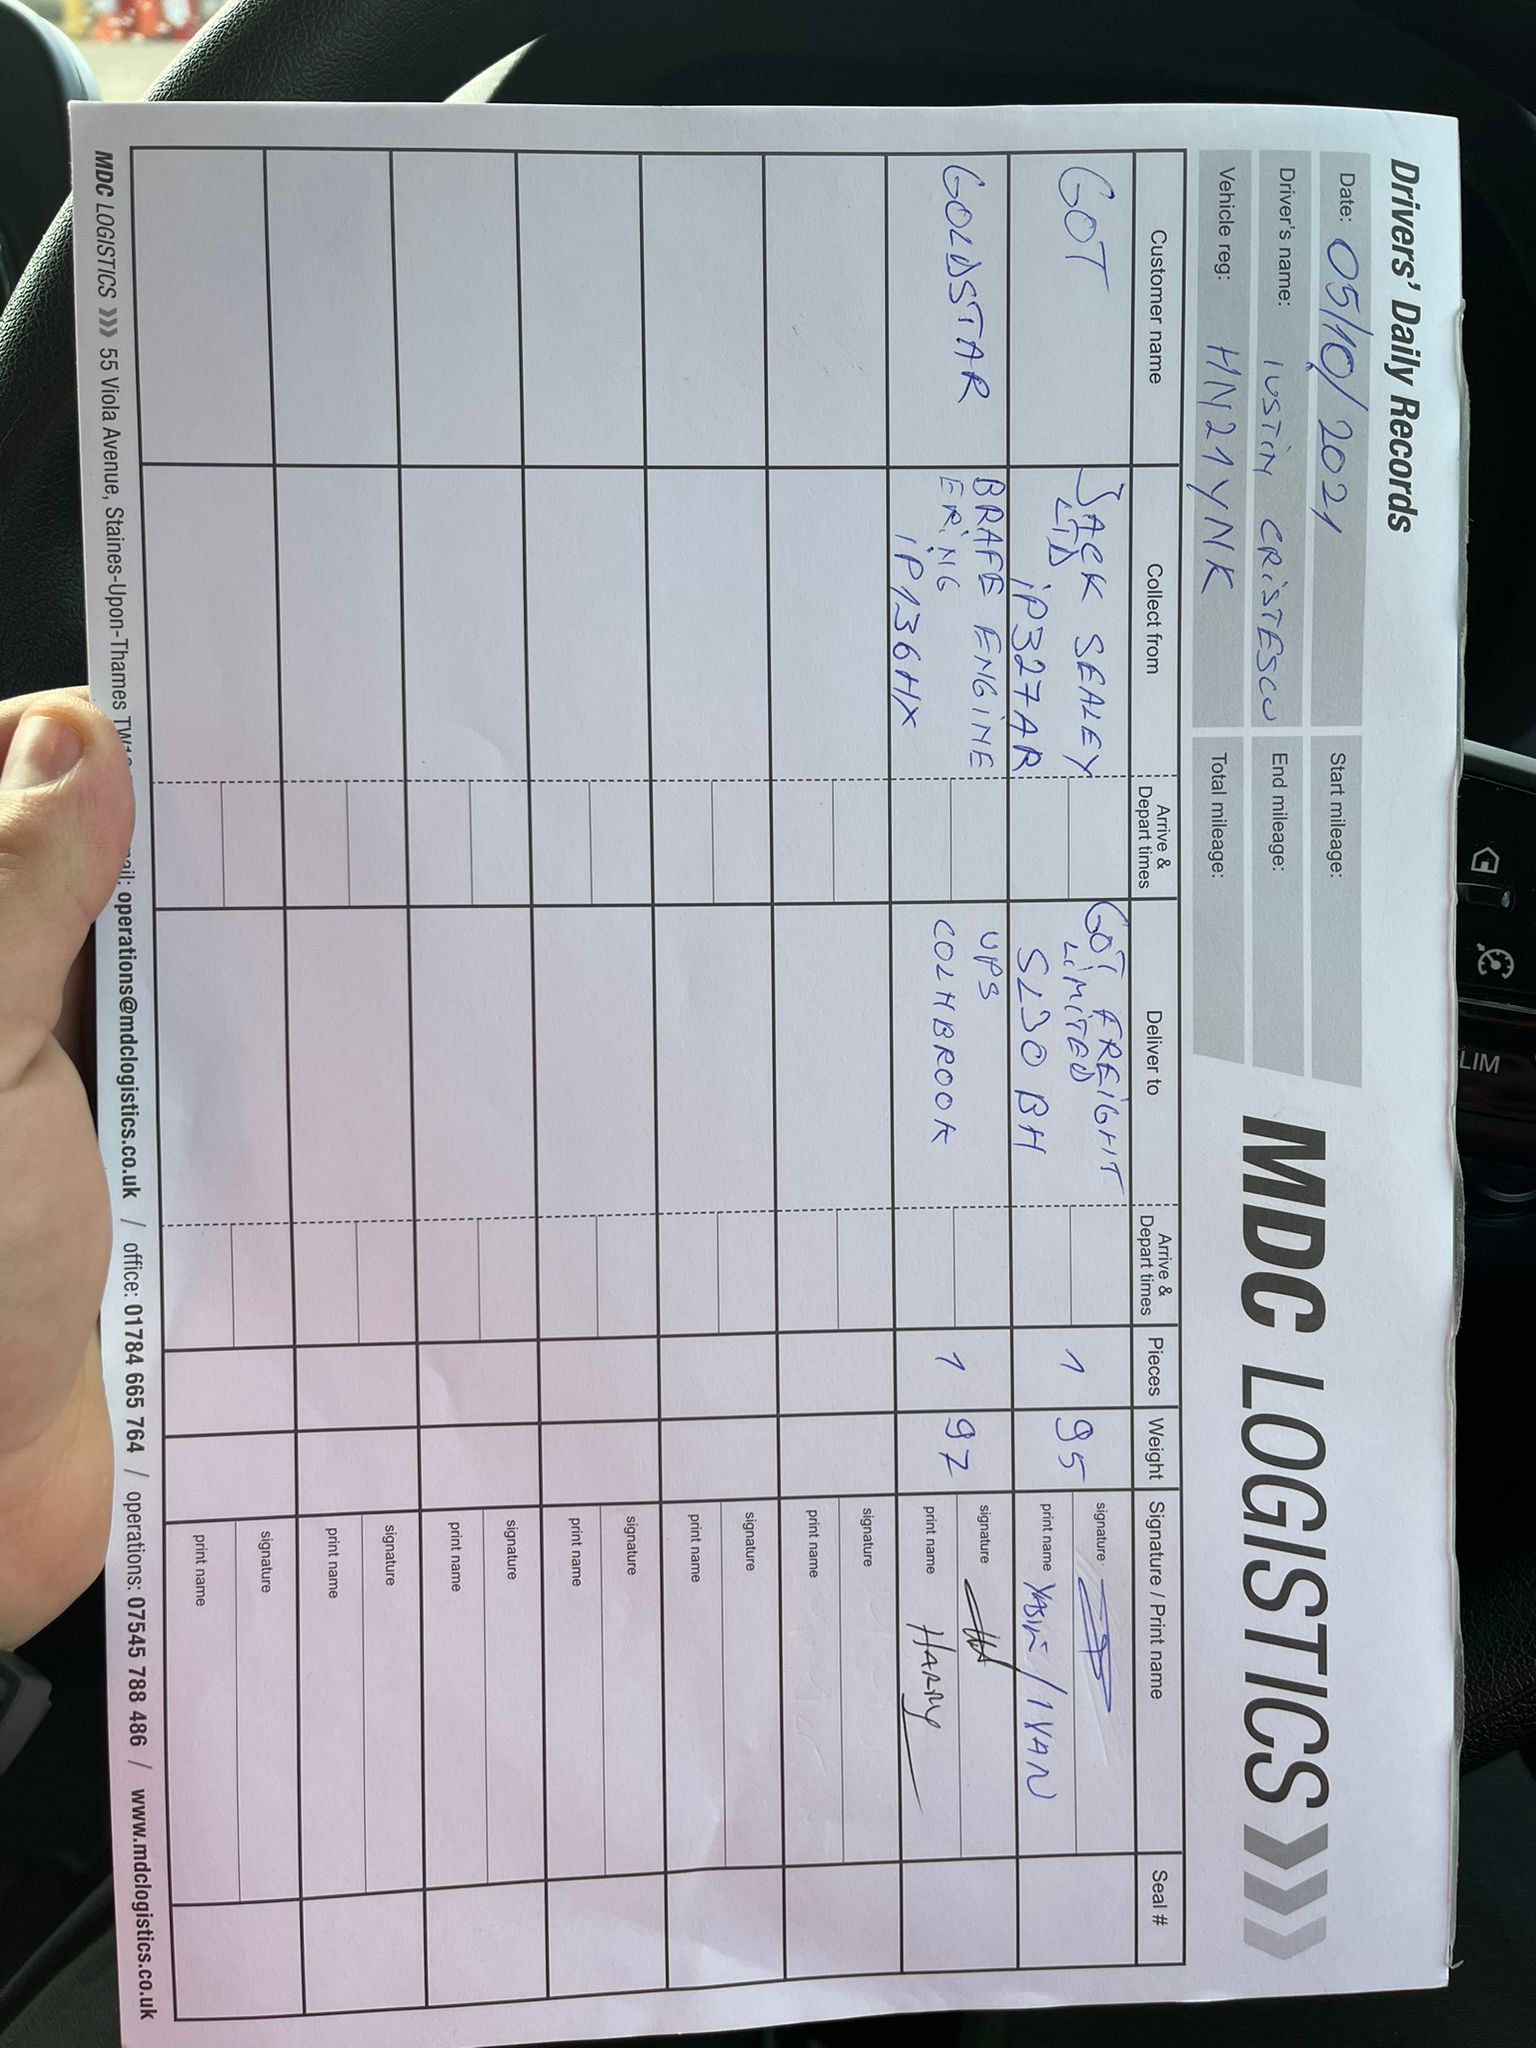 Drivers' Daily Records
Date: 05/10/2021
Start mileage:
Driver's name: IUSTIN CRISTESCU
End mileage:
Vehicle reg: HN21YNK
Total mileage:
MDC LOGISTICS
Customer name
Collect from
Arrive &
Depart times
Deliver to
Arrive &
Depart times
Pieces
Weight
Signature / Print name
Seal #
GOT
JACK SEALEY
LTD
IP327AR
GOT FREIGHT
LIMITED
SL30BH
1
95
signature
print name YASIN / 1 VAN
GOLDSTAR
BRAFE ENGINE
ERING
IP136HX
UPS
COLNBROOK
1
97
signature
print name HARRY
signature
print name
signature
print name
signature
print name
signature
print name
signature
print name
signature
print name
MDC LOGISTICS 55 Viola Avenue, Staines-Upon-Thames operations@mdclogistics.co.uk / office: 01784 665 764 / operations: 07545 788 486 / www.mdclogistics.co.uk
LIM